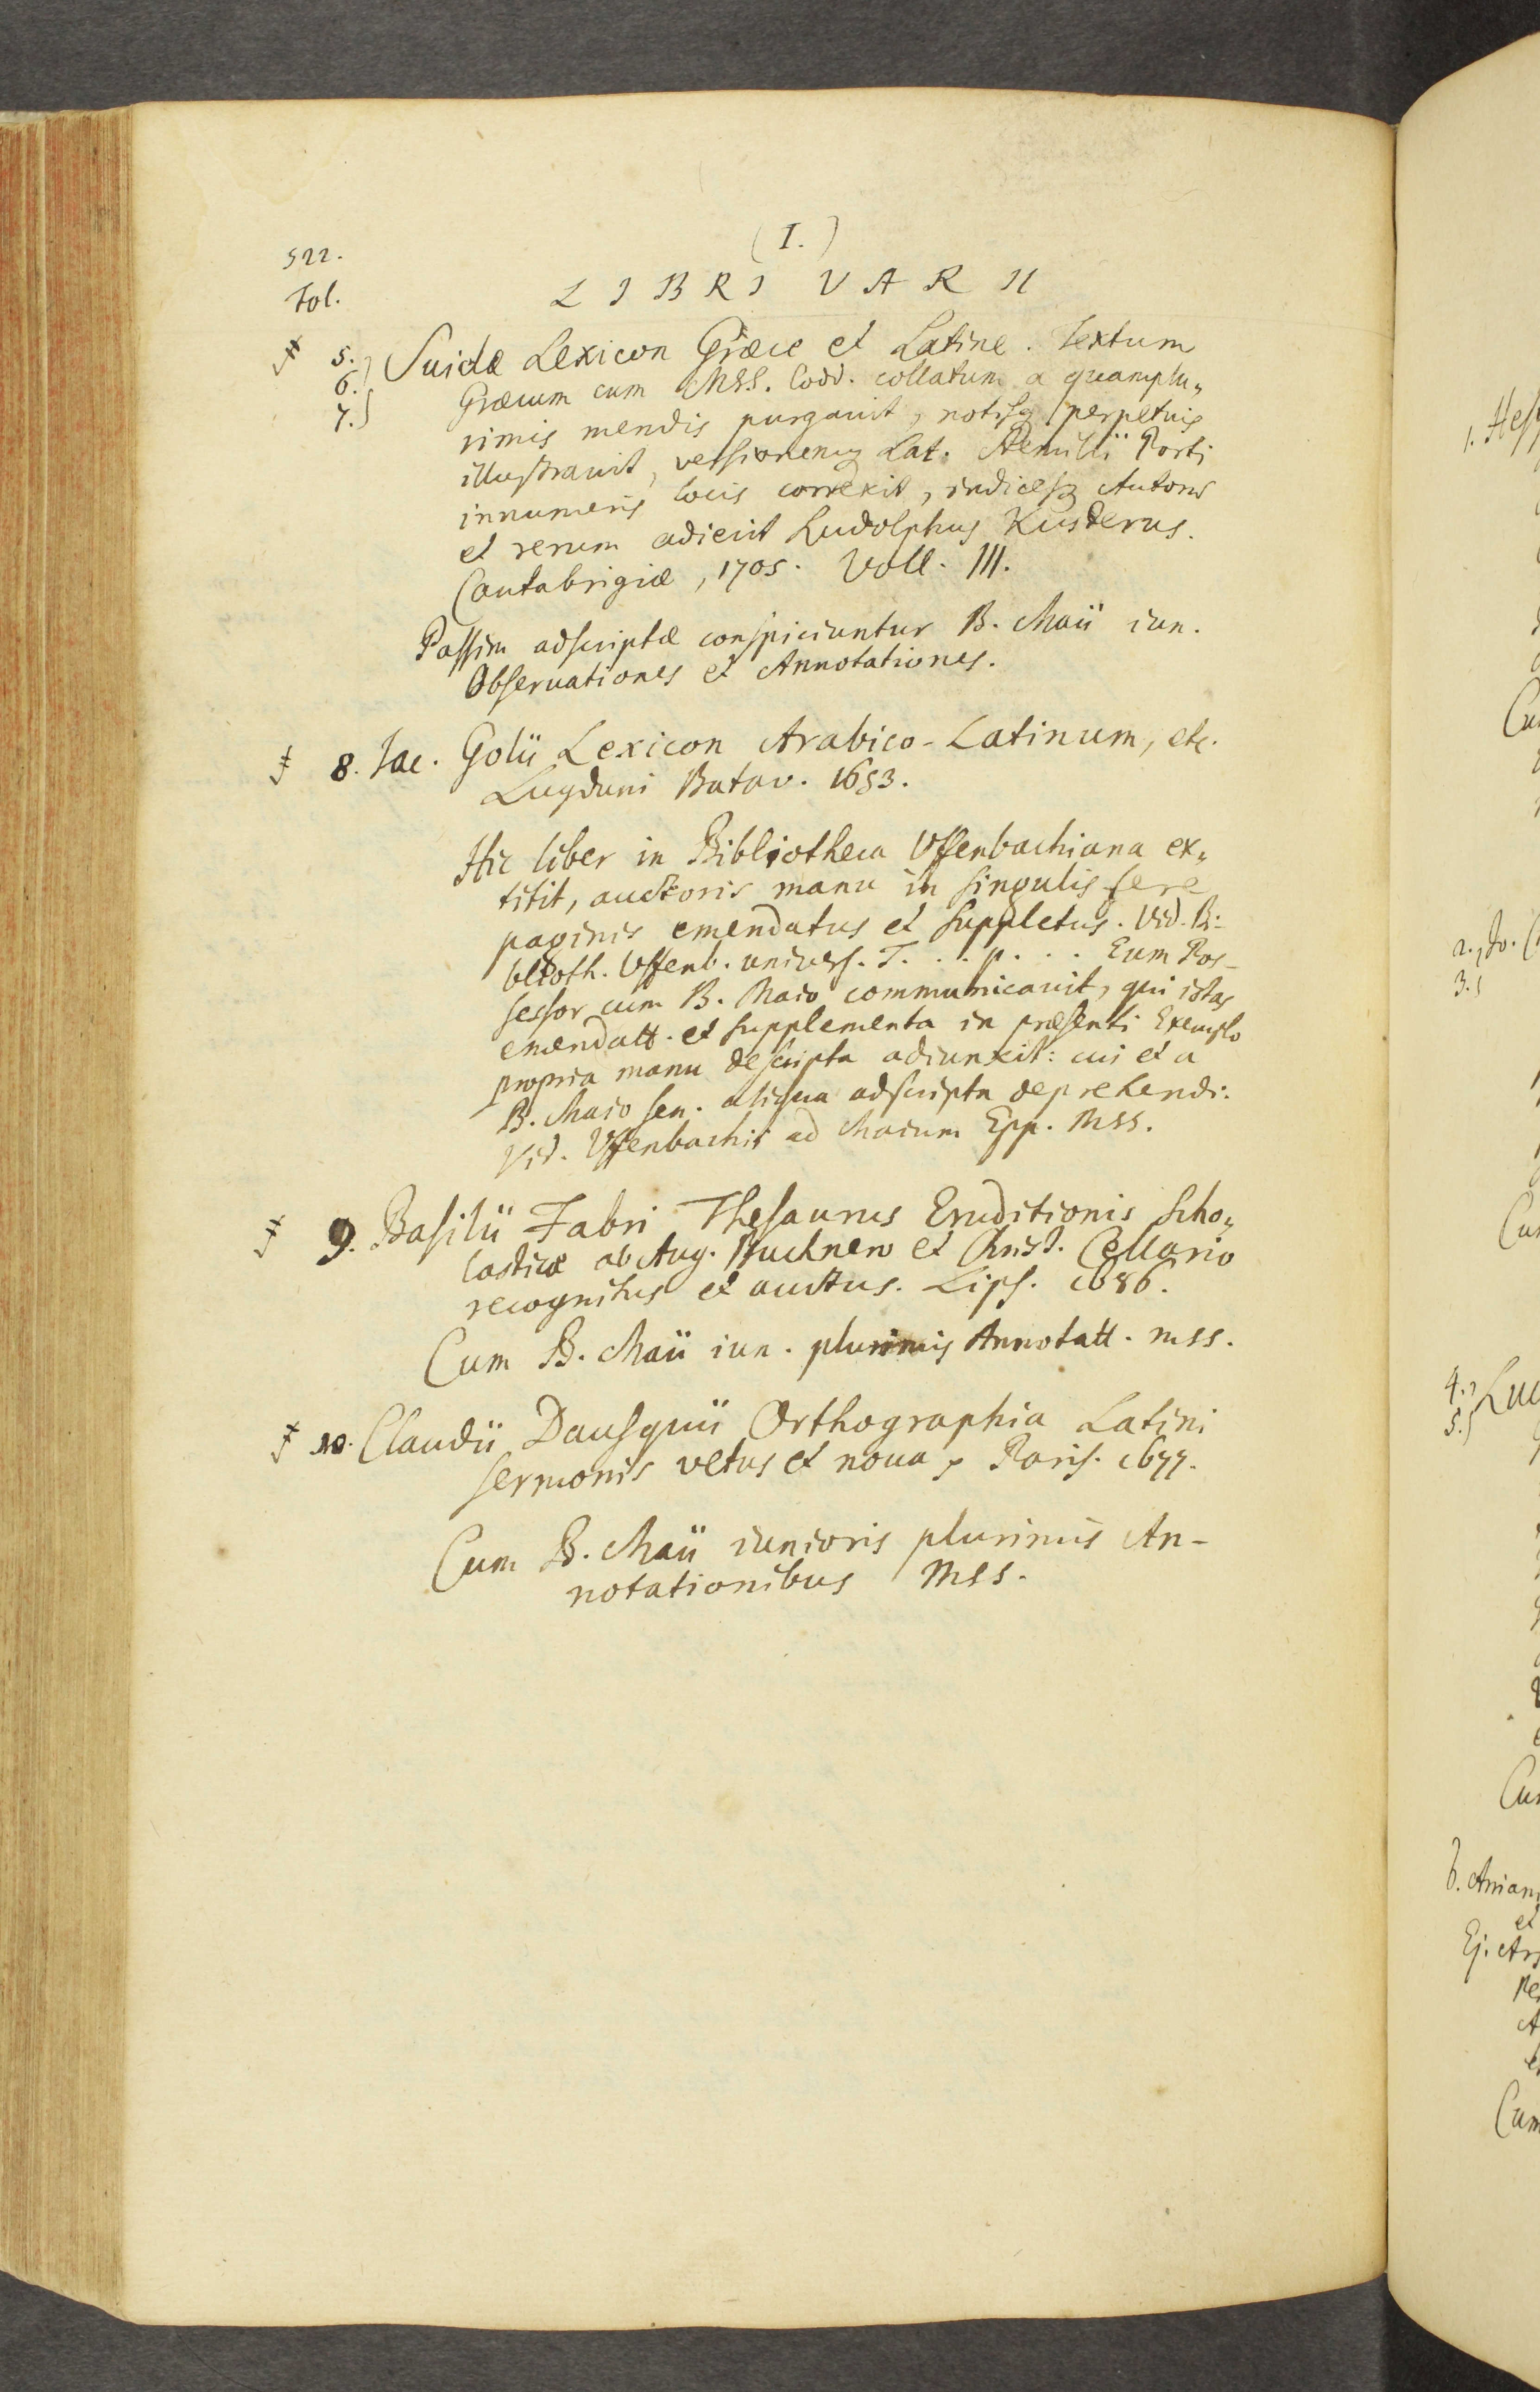 (I.)
522.
Fol.
LIBRI VARII
5. Suidæ Lexicon Græce et Latine. Textum
6. Græcum cum MSS. Codd. collatum a quamplu„
7. rimis mendis purgauit, notisq perpetuis
illustrauit, versionemq Lat. Aemilii Porti
innumeris locis correxit, indicesq Autorr
et rerum adiecit Ludolphus Kusterus.
Cantabrigiæ, 1705. Voll. III.
Passim adscriptæ conspiciuntur B. Maii iun.
Obseruationes et Annotationes.
8. Iac. Golii Lexicon Arabico-Latinum, etc.
Lugduni Batav. 1653.
Hic liber in Bibliotheca Uffenbachiana ex„
titit, auctoris manu in singulis fere
paginis emendatus et suppletus. Vid. Bi-
blioth. Uffenb. univers. T. . . p. . . Eum Pos-
sessor cum B. Maio communicauit, qui istas
emendatt. et supplementa in præsenti Exemplo
propria manu descripta adiunxit: cui et a
B. Maio sen. aliqua adscripta deprehendi.
Vid. Uffenbachii ad Maium Epp. MSS.
9. Basilii Fabri Thesaurus Eruditionis Scho„
lasticæ ab Aug. Buchnero et Christ. Cellario
recognitus et auctus. Lips. 1686.
Cum B. Maii iun. plurimis Annotatt. mss.
10. Claudii Dausquii Orthographia Latini
sermonis vetus et noua, Paris. 1677.
Cum B. Maii iunioris plurimis An-
notationibus MSS.